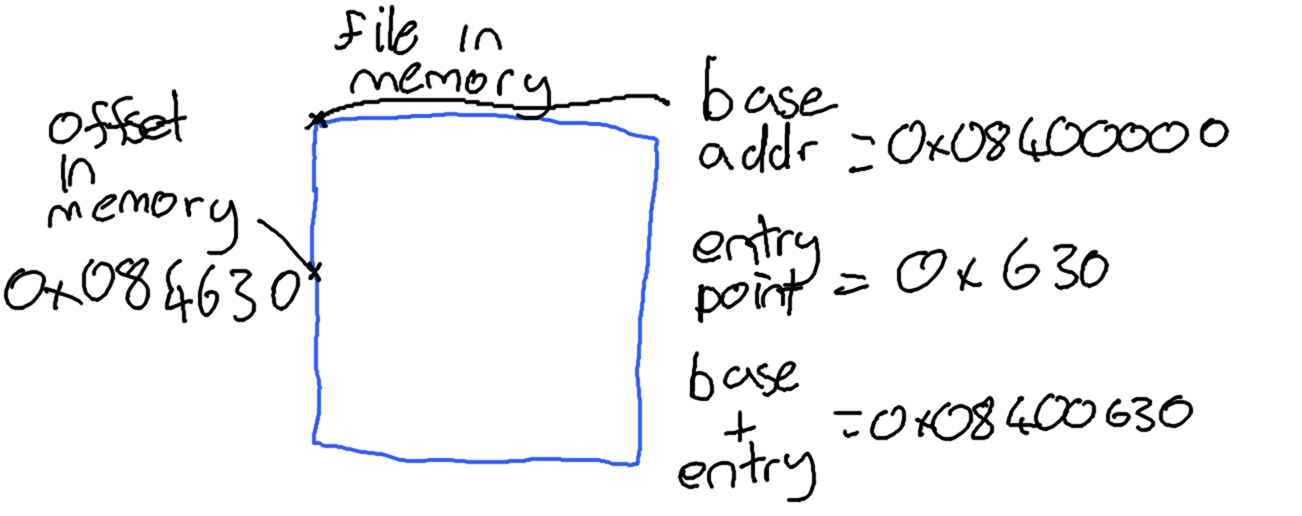 file in
memory
offset
in
memory
0x084630
base
addr = 0x08400000
entry
point = 0x630
base
+
entry = 0x08400630